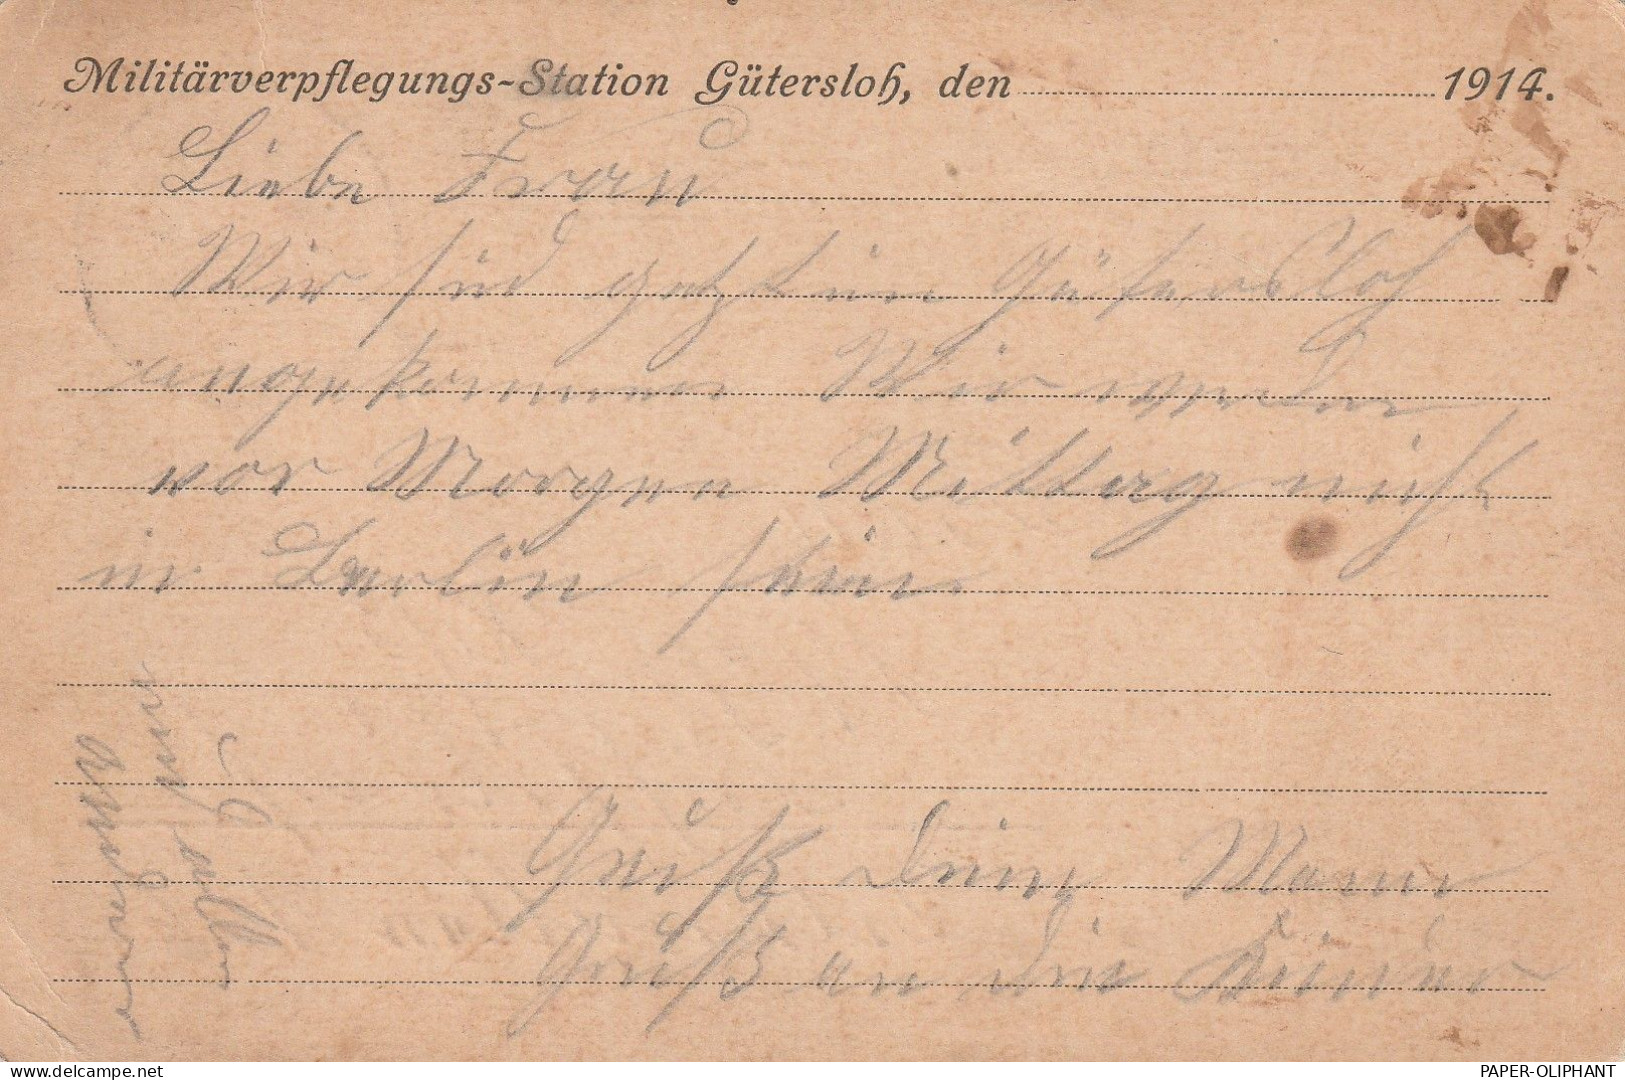 Militärverpflegungs-Station Gütersloh, den 1914.
Liebe Frau
Wir sind getzt in Gütersloh
angekommen Wir werden
vor Morgen Mittag nicht
in Berlin sein
Gruß dein Mann
Gruß an die Kinder
delcampe.net
PAPER-OLIPHANT